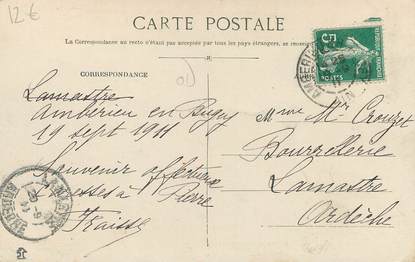 12 €
CARTE POSTALE
La Correspondance au recto n'étant pas acceptée par tous les pays étrangers, se
CORRESPONDANCE
Lamastre
Ambérieu en Bugey
19 sept 1911
Souvenir affectueux
à Pierre
Fraisse
Mme Mr Crouzet
Bourrellerie
Lamastre
Ardèche
5c
POSTES
LAMASTRE
ARDECHE